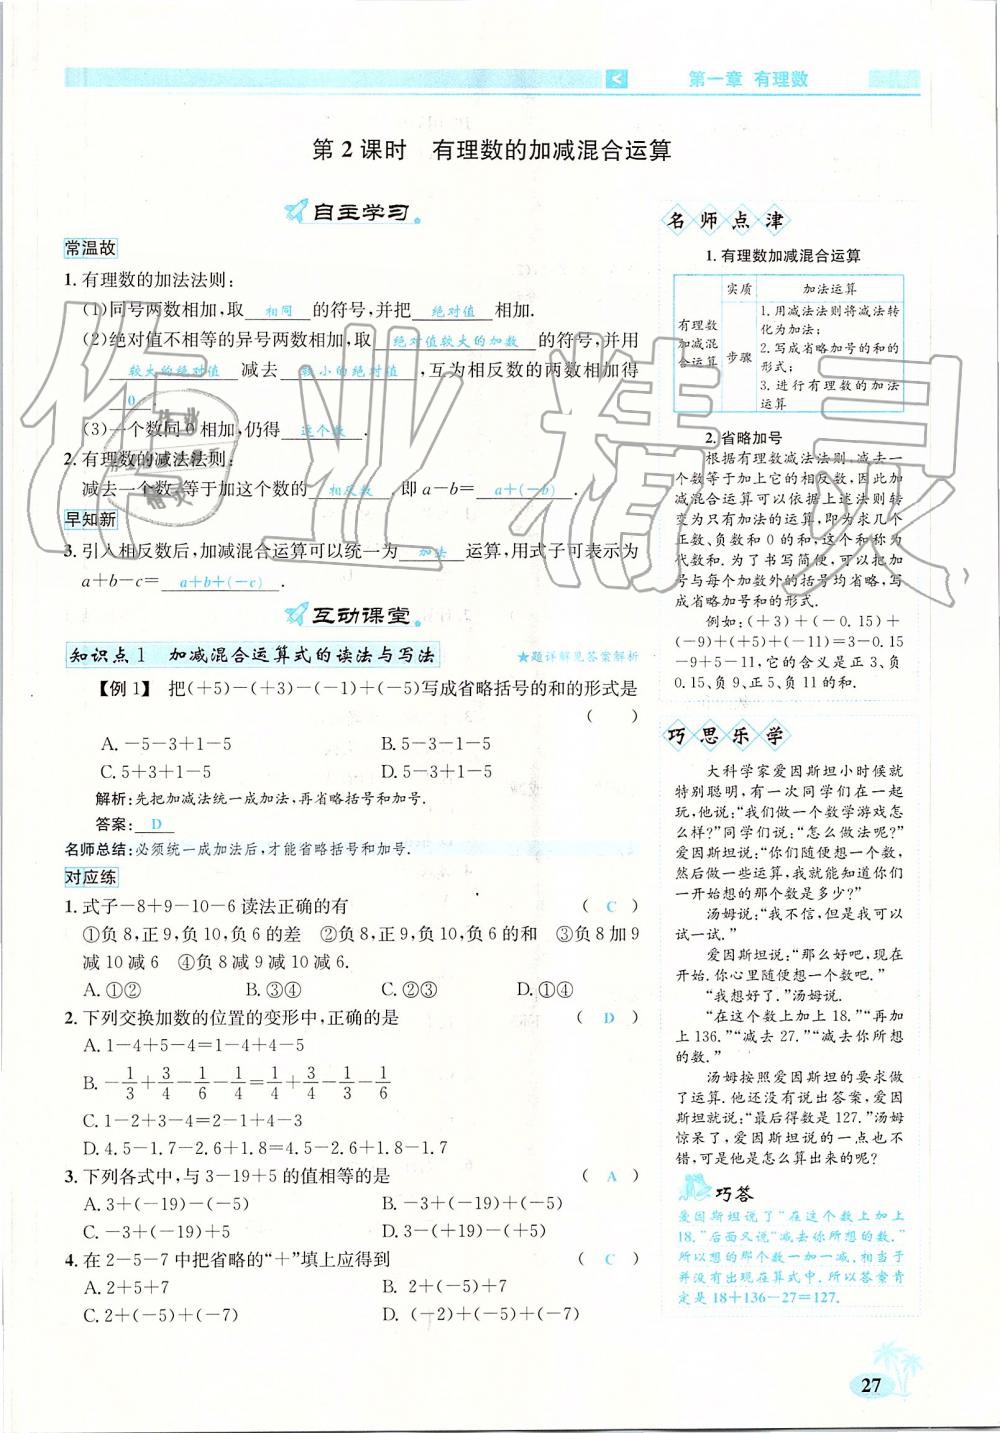 < 第一章 有理数
第2课时 有理数的加减混合运算
自主学习
常温故
1. 有理数的加法法则:
(1)同号两数相加,取 相同 的符号,并把 绝对值 相加.
(2)绝对值不相等的异号两数相加,取 绝对值较大的加数 的符号,并用
较大的绝对值 减去 较小的绝对值 ,互为相反数的两数相加得
0 .
(3)一个数同0相加,仍得 这个数 .
2. 有理数的减法法则:
减去一个数,等于加这个数的 相反数 即 a-b= a+(-b) .
早知新
3. 引入相反数后,加减混合运算可以统一为 加法 运算,用式子可表示为
a+b-c= a+b+(-c) .
互动课堂
知识点1 加减混合运算式的读法与写法 ★题详解见答案解析
【例1】 把(+5)-(+3)-(-1)+(-5)写成省略括号的和的形式是
( )
A. -5-3+1-5 B. 5-3-1-5
C. 5+3+1-5 D. 5-3+1-5
解析:先把加减法统一成加法,再省略括号和加号.
答案: D
名师总结:必须统一成加法后,才能省略括号和加号.
对应练
1. 式子-8+9-10-6读法正确的有 ( C )
①负8,正9,负10,负6的差 ②负8,正9,负10,负6的和 ③负8加9
减10减6 ④负8减9减10减6.
A. ①② B. ③④ C. ②③ D. ①④
2. 下列交换加数的位置的变形中,正确的是 ( D )
A. 1-4+5-4=1-4+4-5
B. -1/3+3/4-1/6-1/4=1/4+3/4-1/3-1/6
C. 1-2+3-4=2-1+4-3
D. 4.5-1.7-2.6+1.8=4.5-2.6+1.8-1.7
3. 下列各式中,与3-19+5的值相等的是 ( A )
A. 3+(-19)-(-5) B. -3+(-19)+(-5)
C. -3+(-19)+5 D. 3-(+19)-(+5)
4. 在2-5-7中把省略的“+”填上应得到 ( C )
A. 2+5+7 B. 2+(-5)+7
C. 2+(-5)+(-7) D. (-2)+(-5)+(-7)
名师点津
1. 有理数加减混合运算
实质 加法运算
有理数加减混合运算
步骤
1. 用减法法则将减法转
化为加法;
2. 写成省略加号的和的
形式;
3. 进行有理数的加法
运算
2. 省略加号
根据有理数减法法则,减去一
个数等于加上它的相反数,因此加
减混合运算可以依据上述法则转
变为只有加法的运算,即为求几个
正数、负数和0的和,这个和称为
代数和. 为了书写简便,可以把加
号与每个加数外的括号均省略,写
成省略加号和的形式.
例如:(+3)+(-0.15)+
(-9)+(+5)+(-11)=3-0.15
-9+5-11,它的含义是正3、负
0.15、负9、正5、负11的和.
巧思乐学
大科学家爱因斯坦小时候就
特别聪明,有一次同学们在一起
玩,他说:“我们做一个数学游戏怎
么样?”同学们说:“怎么做法呢?”
爱因斯坦说:“你们随便想一个数,
然后做一些运算,我就能知道你们
一开始想的那个数是多少?”
汤姆说:“我不信,但是我可以
试一试.”
爱因斯坦说:“那么好吧,现在
开始. 你心里随便想一个数吧.”
“我想好了.”汤姆说.
“在这个数上加上18.”“再加
上136.”“减去27.”“减去你所想
的数.”
汤姆按照爱因斯坦的要求做
了运算. 他还没有说出答案,爱因
斯坦就说:“最后得数是127.”汤姆
惊呆了,爱因斯坦说的一点也不
错,可是他是怎么算出来的呢?
巧答
爱因斯坦说了“在这个数上加上
18.”后面又说“减去你所想的数.”
所以想的那个数一加一减,相当于
并没有出现在算式中. 所以答案肯
定是18+136-27=127.
27
作业精灵